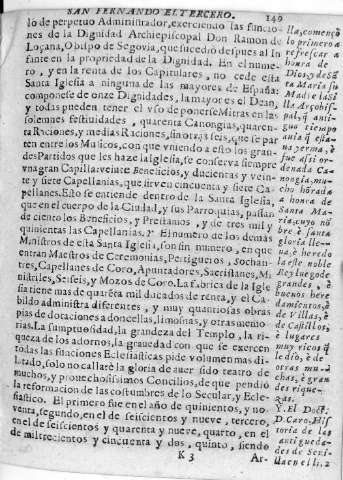 SAN FERNANDO EL TERCERO. 149
lo de perpetuo Administrador, exerciendo las funcio-
nes de la Dignidad Archiepiscopal Don Ramon de
Loçana, Obispo de Segovia, que sucediò despues al In
fante en la propriedad de la Dignidad. En el nume-
ro, y en la renta de los Capitulares, no cede esta
Santa Iglesia a ninguna de las mayores de España:
componese de onze Dignidades, la mayor es el Dean,
y todas pueden tener el vso de ponerse Mitras en las
solemnes festiuidades, quarenta Canongias, quaren-
ta Raciones, y medias Raciones, sin otras que se par
ten entre los Musicos, con que viniendo a esto los gran-
des Partidos que les haze la Iglesia, se conserva siempre
vna gran Capilla: veinte Beneficios, y ducientas y vein-
te y siete Capellanias, que sirven cincuenta y siete Ca-
pellanes. Esto se entiende dentro de la Santa Iglesia,
que en el cuerpo de la Ciudad, y sus Parroquias, passan
de ciento los Beneficios, y Prestamos, y de tres mil y
quinientas las Capellanias; y El numero de los demàs
Ministros de esta Santa Iglesia, son sin numero, en que
entran Maestros de Ceremonias, Pertigueros, Sochan-
tres, Capellanes de Coro, Apuntadores, Sacristanes, Mi
nistriles, Seises, y Mozos de Coro. La fabrica de la Igle
sia tiene mas de quarenta mil ducados de renta, y el Ca-
bildo administra diferentes, y muy quantiosas obras
pias de dotaciones a doncellas, limosnas, y otras memo-
rias. La sumptuosidad, la grandeza del Templo, la ri-
queza de los adornos, la gravedad con que se exercen
todas las funciones Eclesiasticas pide volumen mas di-
latado, solo no callarè la gloria de auer sido teatro de
muchos, y prouechosissimos Concilios, de que pendiò
la reformacion de las costumbres de lo Secular, y Ecle-
siastico. El primero fue en el año de quinientos, y no-
venta, segundo, en el de seiscientos y nueve, tercero,
en el de seiscientos y quarenta y nueve, quarto, en el
de mil trecientos y cincuenta y dos, quinto, siendo
K 3 Ar-
lla, començò
lo primero a
refrescar a
honra de
Dios, y de Sã
ta Maria su
Madre la Si
lla Arçobis-
pal, q̃ anti-
guo tiempo
auia q̃ esta-
ua yerma, è
fue assi or-
denada Ca-
nongia, mu-
cho honrada
a honra de
Santa Ma-
ria, cuyo nõ
bre è santa
gloria lle-
ua, è heredo
la este noble
Rey luego de
grandes, è
buenos here
damientos, è
de Villas, è
de Castillos,
è lugares
muy ricos q̃
le diò, è de
otras mu-
chas, è gran
des rique-
zas.
Y. El Doct.
D. Caro, His
toria de las
antigueda-
des de Sevi-